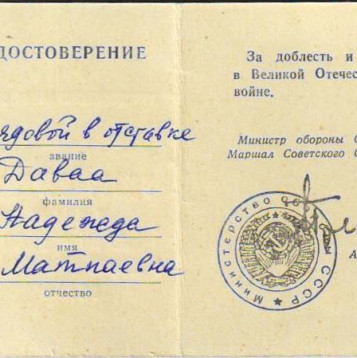 ДОСТОВЕРЕНИЕ
ядовой в отставке
звание
Даваа
фамилия
Надежда
имя
Матпаевна
отчество
За доблесть и
в Великой Отечес
войне.
Министр обороны С
Маршал Советского С
Министерство Обороны СССР
А